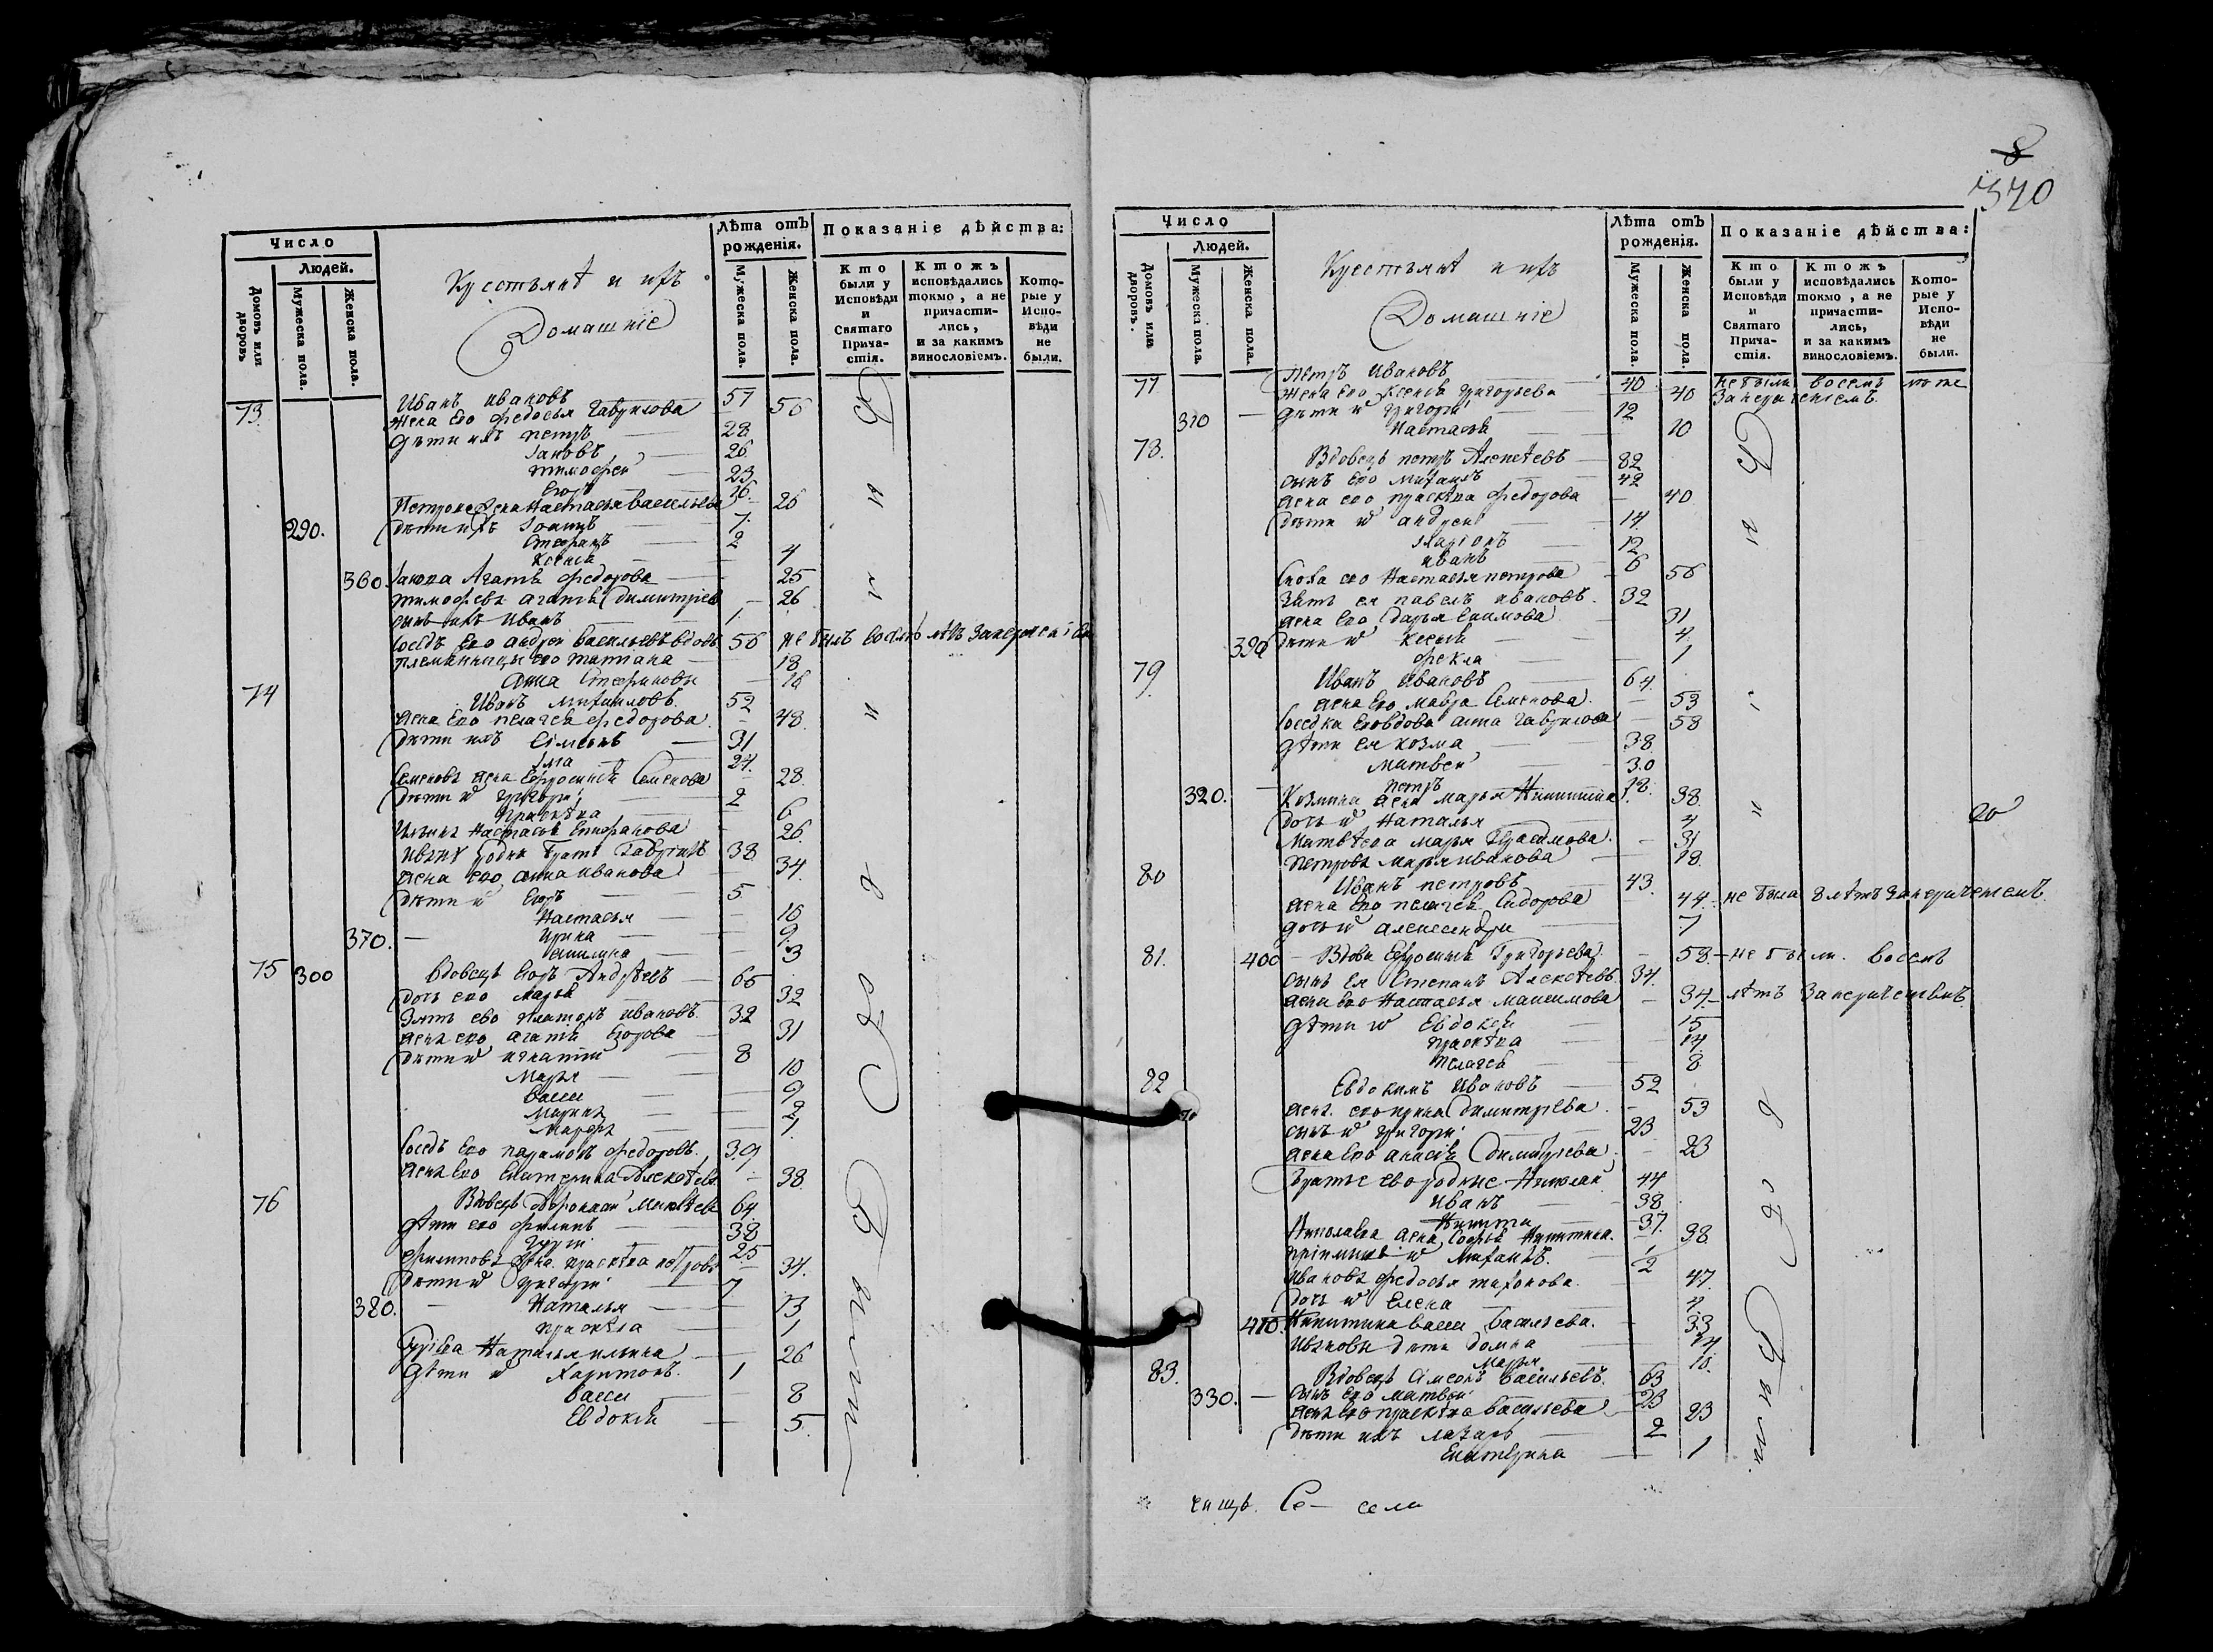 Число
Людей.
Домовъ или дворовъ
Мужеска пола.
Женска пола.
Крестьянѣ и ихъ
Домашніе
Лѣта отъ рожденія.
Мужеска пола.
Женска пола.
Показаніе дѣйства:
Кто были у Исповѣди и Святаго Причастія.
Ктожъ исповѣдались токмо, а не причастились, и за какимъ винословіемъ.
Которые у Исповѣди не были.
73. Иванъ Ивановъ 57
Жена его Федосья Гаврилова 56
Дѣти ихъ Петръ 28
Іаковъ 26
Тимофей 23
Егоръ 16
Петрова жена Настасья Васильева 26
290. Дѣти ихъ 7
Стефанъ 2
Ксенія 4
360. Іакова Агафья Федорова 25
Тимофеева Агафья Димитріева 26
сынъ ихъ Иванъ 1
Сосѣдъ его Андрей Васильевъ вдовъ 56 не былъ
племянницы его Татиана 18
Анна Стефановы 16
74 Иванъ Михайловъ 52
жена его Пелагея Федорова 48
Дѣти ихъ Сімеонъ 31
Ілія 24
Семенова жена Евросинья Семенова 28
дѣти Григорій 2
Праскева 6
Ильина Настасья Стефанова 26
родной братъ Гавріилъ 38
жена его Анна Иванова 34
Дѣти Егоръ 5
Настасья 16
370. Ирина 9
Акилина 3
75 300 Вдовецъ Егоръ Андреевъ 65
дочь его Марья 32
Зять ево Платонъ Ивановъ 32
жена его Агафья Егорова 31
дѣти Игнатій 8
Марья 10
Васса 9
Марина 2
Марфа 1
Сосѣдъ его Парамонъ Федоровъ 39
жена его Екатерина Алексѣева 38
76 Вдовецъ Матвѣевъ 64
дѣти его Филипъ 38
Гурій 25
Филипова жена Праскева Петрова 34
дѣти Григорій 7
380. Наталья 13
Праскева 1
Гурьева Наталья Ильина 26
дѣти Харитонъ 1
Васса 8
Евдокія 5
8
370
Число
Людей.
Домовъ или дворовъ.
Мужеска пола.
Женска пола.
Крестьянѣ и ихъ
Домашніе
Лѣта отъ рожденія.
Мужеска пола.
Женска пола.
Показаніе дѣйства:
Кто были у Исповѣди и Святаго Причастія.
Ктожъ исповѣдались токмо, а не причастились, и за какимъ винословіемъ.
Которые у Исповѣди не были.
77 Петръ Ивановъ 40 не были восемь
жена его Ксенія Григорьева 40
310 дѣти Григорій 12
Настасья 10
78. Вдовецъ Петръ Алексѣевъ 82
сынъ его Михаилъ 42
жена его Праскева Федорова 40
дѣти Андрей 14
Иларіонъ 12
Иванъ 6
Сноха его Настасья Петрова 56
Зять ея Павелъ Ивановъ 32
жена его Дарья Екимова 31
390 дѣти Ксенія 4
Фекла 1
79 Иванъ Ивановъ 64
жена его Мавра Семенова 53
сосѣдка его вдова Анна Гаврилова 58
дѣти ея Козма 38
Матвей 30
Петръ 18
320. Козмина жена Марья Никитина 38
дочь Наталья 4
Матвѣева Марья Герасимова 31
Петрова Марья Иванова 18
80 Иванъ Петровъ 43
жена его Пелагея Сидорова 44 не была 8 лѣтъ
дочь Александра 7
81. 400 Вдова Евросинья Григорьева 58 не были восемь
сынъ ея Степанъ Алексѣевъ 34
жена его Настасья Максимова 34 лѣтъ
дѣти Евдокея 15
Праскева 14
Пелагея 8
82 Евдокимъ Ивановъ 52
жена его Ирина Димитріева 53
сынъ Григорій 23
жена его Анисья Димитріева 23
братье ево родные Николай 44
Иванъ 38
Никита 37
Николаева жена Софья Никитина 38
Михаилъ 2
Иванова Федосья Тихонова 47
дочь Елена 4
410. Никитина Васса Васильева 33
Ивановы дѣти Домна 14
Марья 10
83. Вдовецъ Сімеонъ Васильевъ 63
330. сынъ его Матвей 23
жена его Праскева Васильева 23
дѣти ихъ Лазарь 2
Екатерина 1